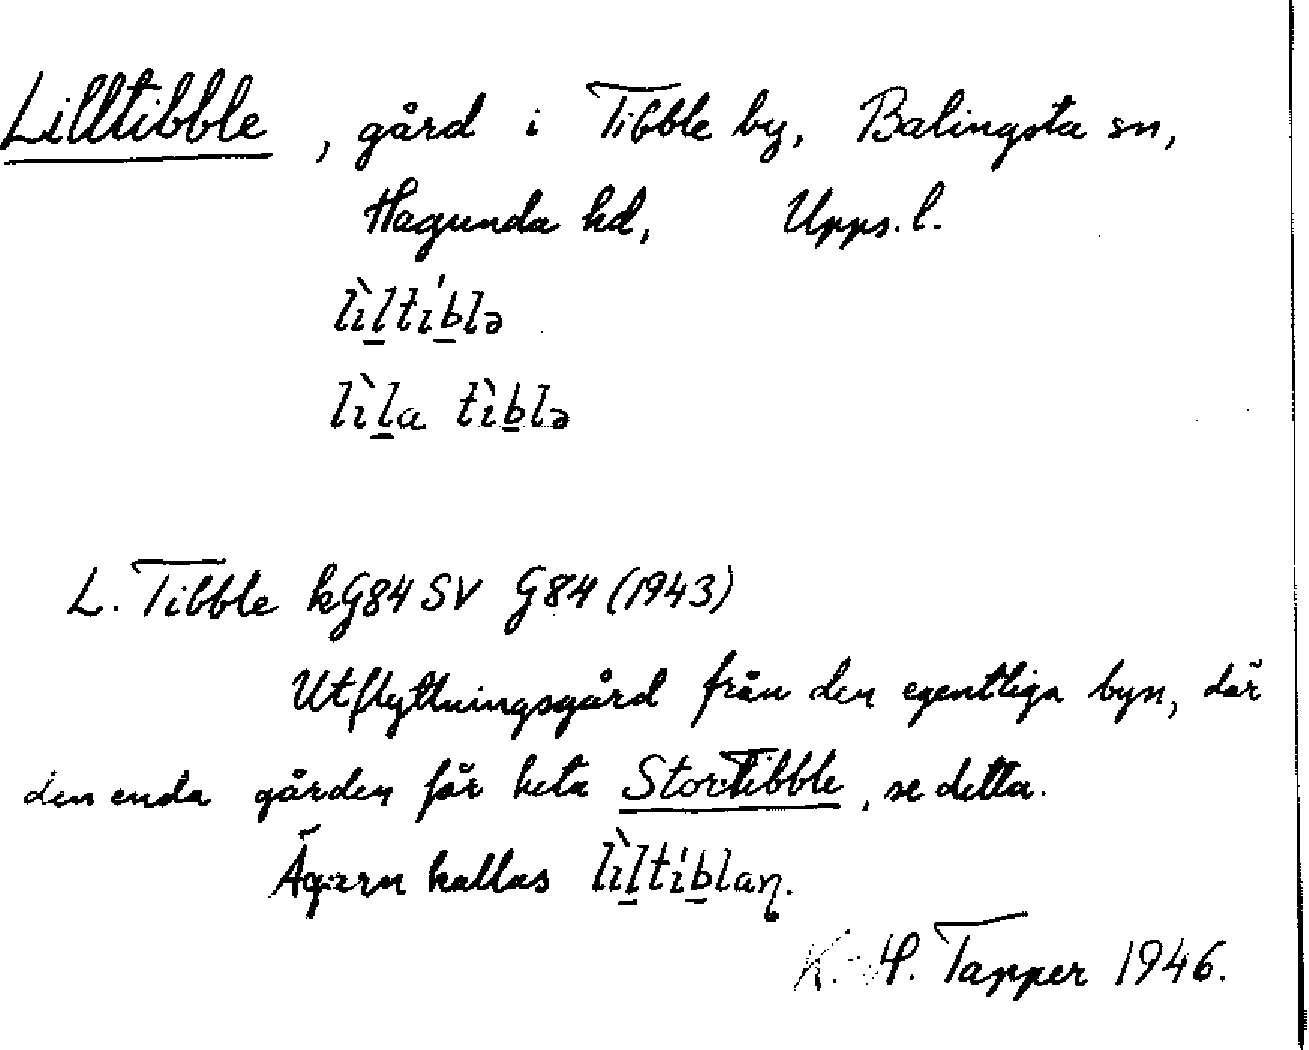 Lilltibble, gård i Tibble by, Balingsta sn,
Hagunda hd, Upps. l.
lɪ̀l̲tɪ́b̲lə
lɪ̀l̲a tɪ̀b̲lə
L. Tibble kG84 SV G84 (1943)
Utflyttningsgård från den egentliga byn, där
den enda gården får heta StorTibble, se detta.
Ägarn kallas lɪ̀l̲tɪ́b̲laɳ.
K.-H. Tapper 1946.